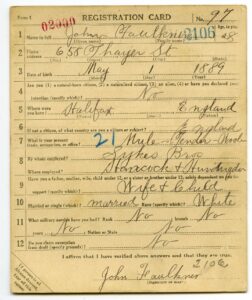 Form 1 REGISTRATION CARD No. 97
02000
2106
1 Name in full John Faulkner 28
2 Home address 658 Thayer St
3 Date of birth May 1 1889
4 No
5 Where were you born? Halifax England
6 If not a citizen, of what country are you a citizen or subject? England
7 21 Mule Tender Wool
8 By whom employed? Sykes Bros
Where employed? Hancock & Huntingdon
9 Have you a father, mother, wife, child under 12, or a sister or brother under 12, solely dependent on you for
support (specify which)? Wife & Child
10 Married or single (which)? married Race (specify which)? White
11 What military service have you had? Rank No branch No
years No Nation or State No
12 Do you claim exemption
from draft (specify grounds)? No
I affirm that I have verified above answers and that they are true.
2106
John Faulkner